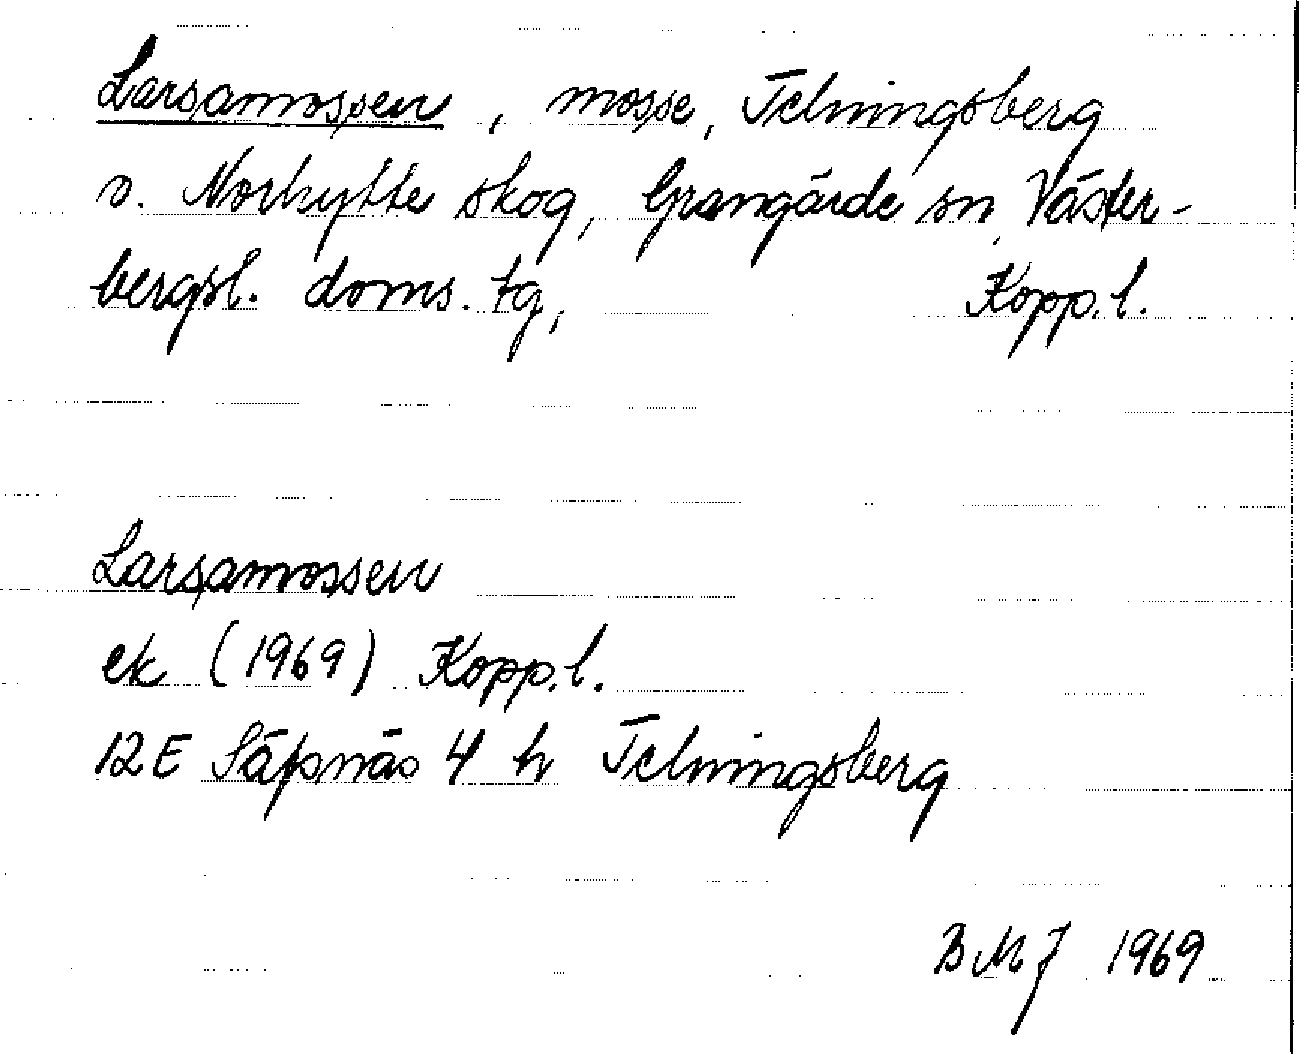 Larsamossen, mosse, Telningsberg
o. Norhytte skog, Grangärde sn, Väster-
bergsl. doms. tg, Kopp. l.
Larsamossen
ek (1969) Kopp. l.
12E Säfsnäs 4 h Telningsberg
BMJ 1969